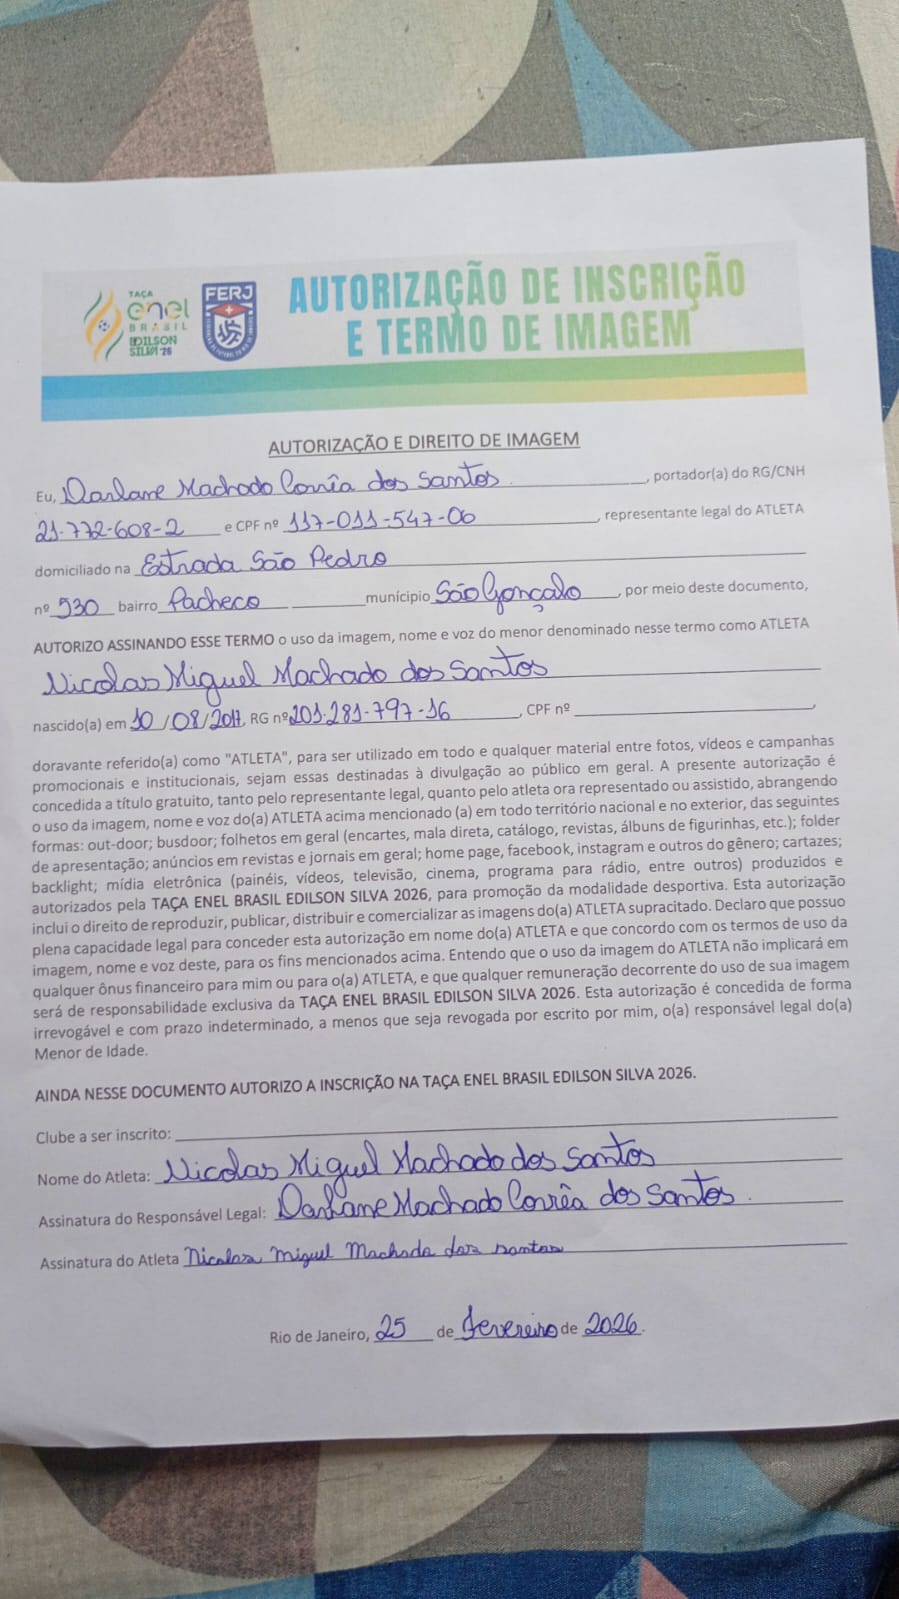 TAÇA
enel
BRASIL
EDILSON
SILVA '26
FERJ
AUTORIZAÇÃO DE INSCRIÇÃO
E TERMO DE IMAGEM
AUTORIZAÇÃO E DIREITO DE IMAGEM
Eu, Darlane Machado Corrêa dos Santos, portador(a) do RG/CNH
21.772-608-2 e CPF nº 117-011-547-06, representante legal do ATLETA
domiciliado na Estrada São Pedro
nº 930 bairro Pacheco munícipio São Gonçalo, por meio deste documento,
AUTORIZO ASSINANDO ESSE TERMO o uso da imagem, nome e voz do menor denominado nesse termo como ATLETA
Nicolas Miguel Machado dos Santos
nascido(a) em 10/08/2017, RG nº 201.281-797-16, CPF nº ,
doravante referido(a) como "ATLETA", para ser utilizado em todo e qualquer material entre fotos, vídeos e campanhas
promocionais e institucionais, sejam essas destinadas à divulgação ao público em geral. A presente autorização é
concedida a título gratuito, tanto pelo representante legal, quanto pelo atleta ora representado ou assistido, abrangendo
o uso da imagem, nome e voz do(a) ATLETA acima mencionado (a) em todo território nacional e no exterior, das seguintes
formas: out-door; busdoor; folhetos em geral (encartes, mala direta, catálogo, revistas, álbuns de figurinhas, etc.); folder
de apresentação; anúncios em revistas e jornais em geral; home page, facebook, instagram e outros do gênero; cartazes;
backlight; mídia eletrônica (painéis, vídeos, televisão, cinema, programa para rádio, entre outros) produzidos e
autorizados pela TAÇA ENEL BRASIL EDILSON SILVA 2026, para promoção da modalidade desportiva. Esta autorização
inclui o direito de reproduzir, publicar, distribuir e comercializar as imagens do(a) ATLETA supracitado. Declaro que possuo
plena capacidade legal para conceder esta autorização em nome do(a) ATLETA e que concordo com os termos de uso da
imagem, nome e voz deste, para os fins mencionados acima. Entendo que o uso da imagem do ATLETA não implicará em
qualquer ônus financeiro para mim ou para o(a) ATLETA, e que qualquer remuneração decorrente do uso de sua imagem
será de responsabilidade exclusiva da TAÇA ENEL BRASIL EDILSON SILVA 2026. Esta autorização é concedida de forma
irrevogável e com prazo indeterminado, a menos que seja revogada por escrito por mim, o(a) responsável legal do(a)
Menor de Idade.
AINDA NESSE DOCUMENTO AUTORIZO A INSCRIÇÃO NA TAÇA ENEL BRASIL EDILSON SILVA 2026.
Clube a ser inscrito:
Nome do Atleta: Nicolas Miguel Machado dos Santos
Assinatura do Responsável Legal: Darlane Machado Corrêa dos Santos.
Assinatura do Atleta Nicolas miguel Machado dos santos
Rio de Janeiro, 25 de fevereiro de 2026.